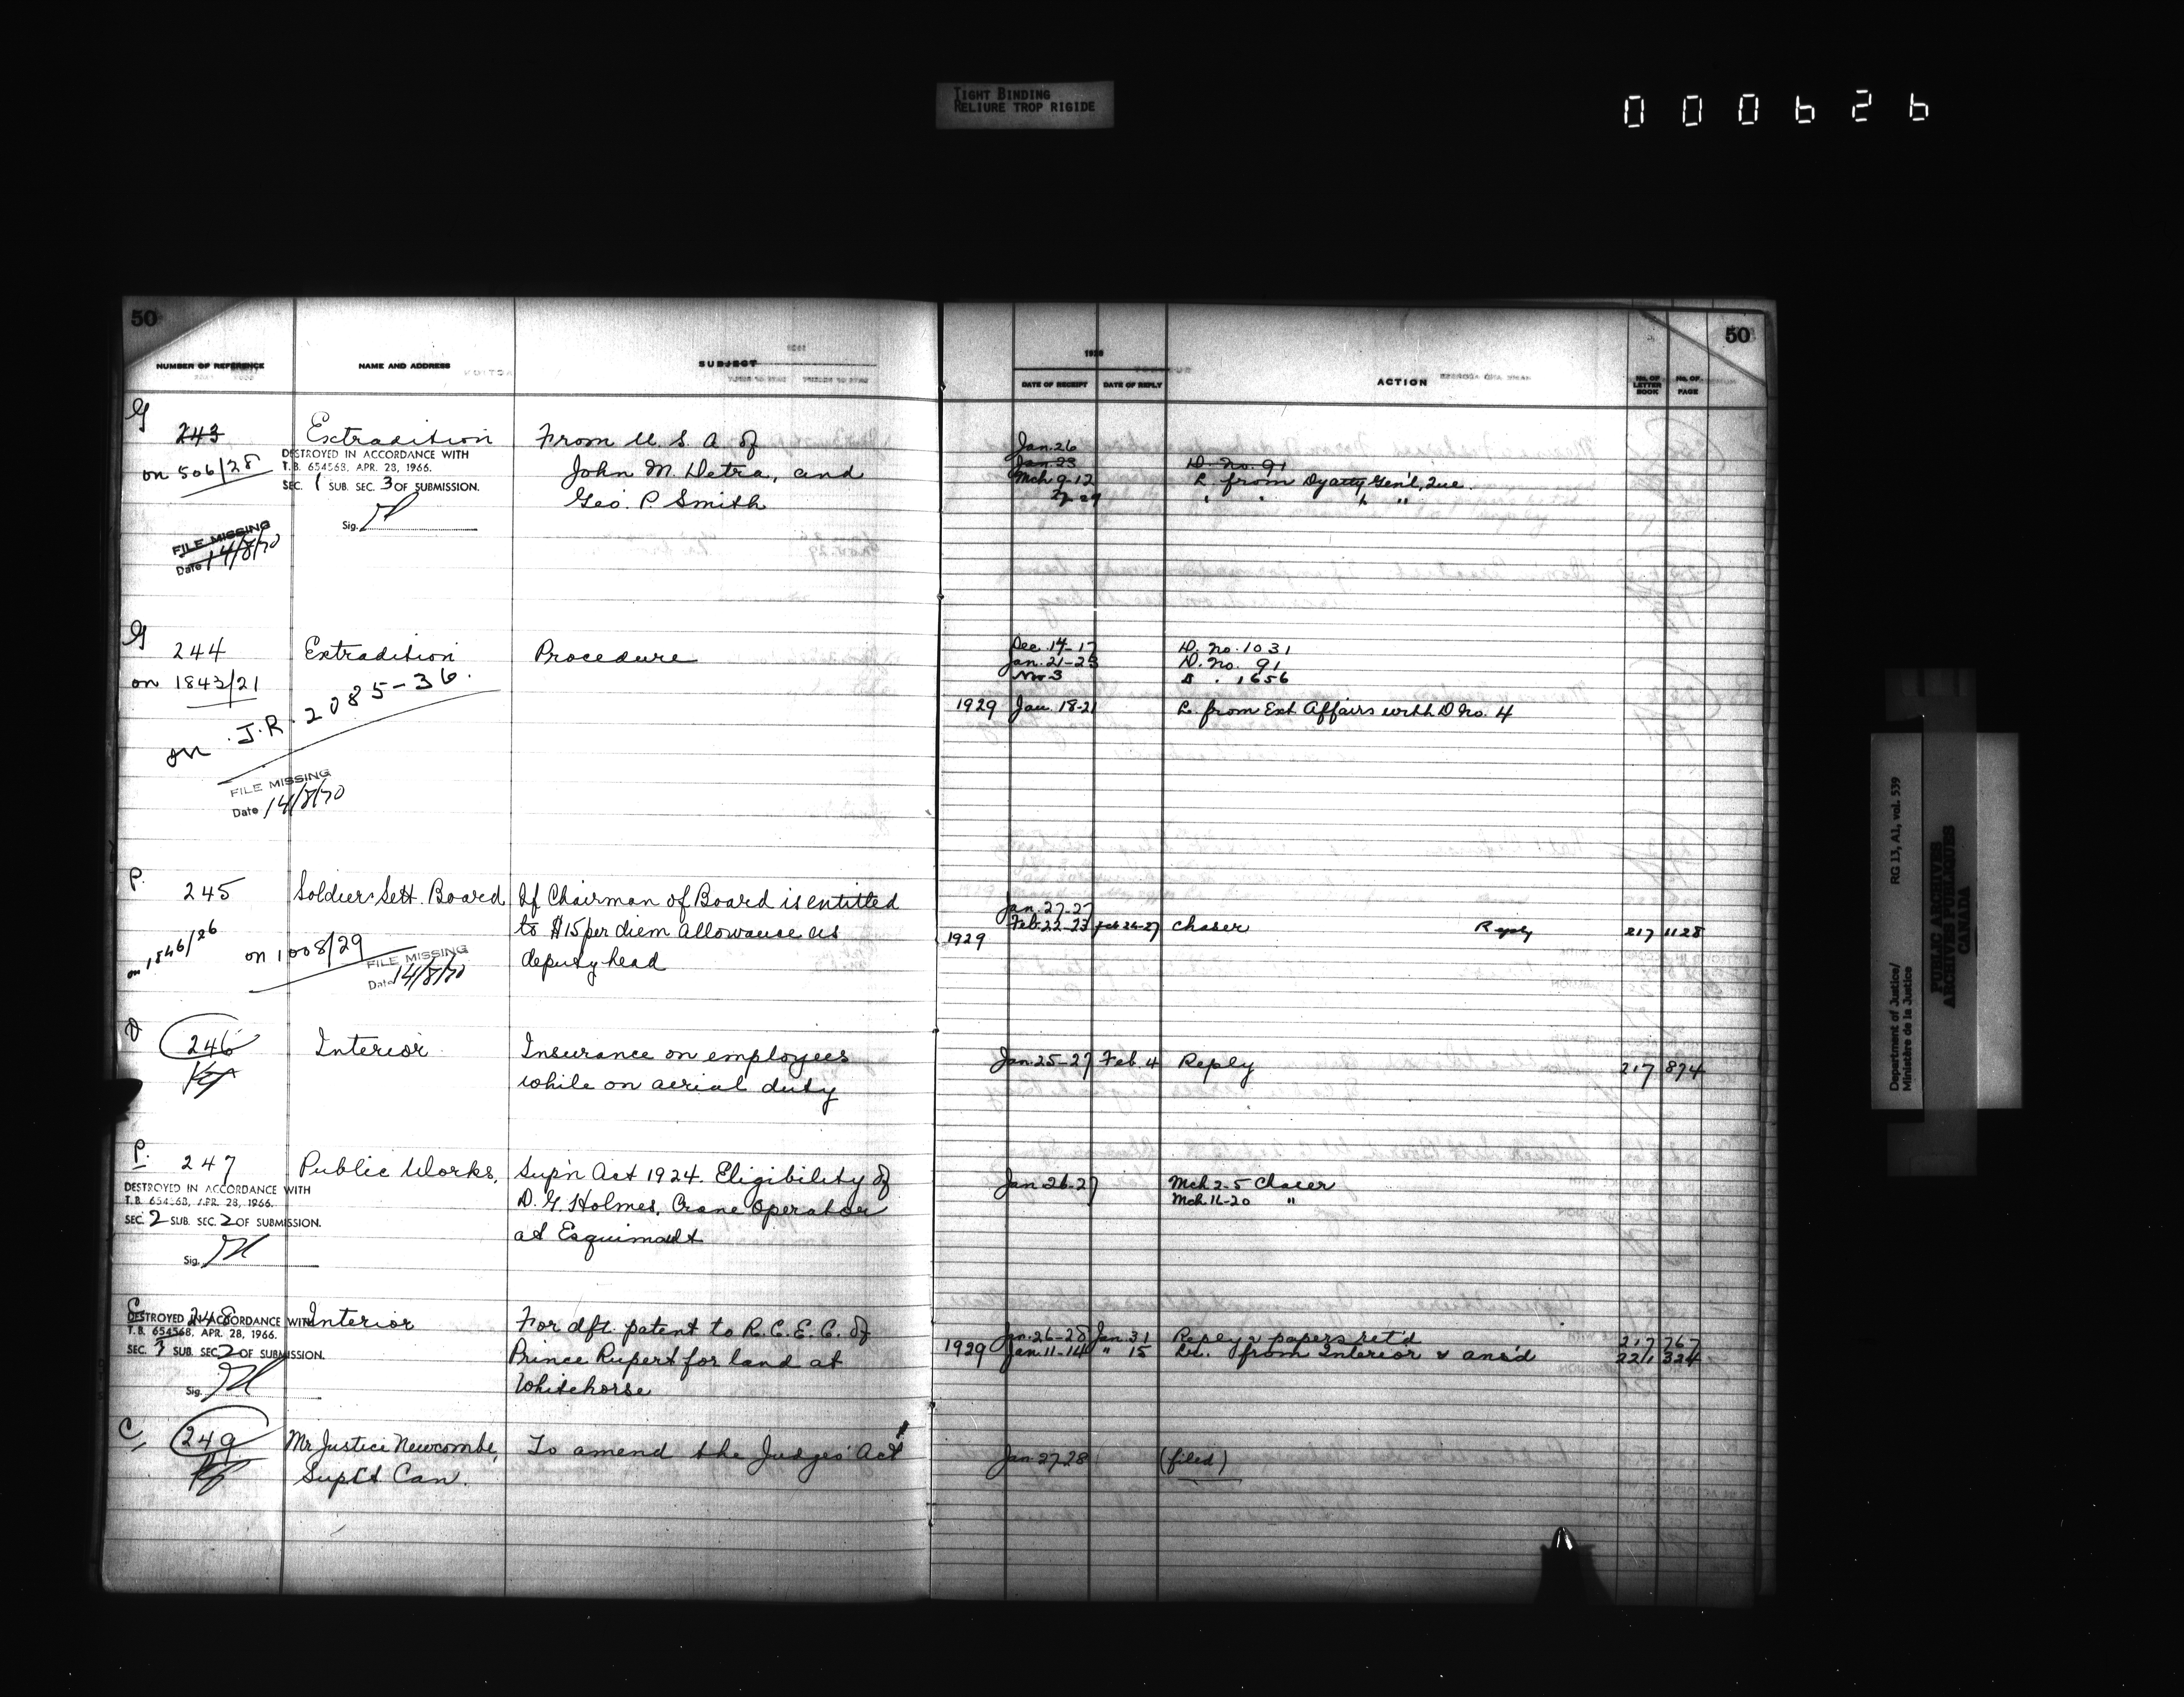 TIGHT BINDING
RELIURE TROP RIGIDE
000626
50
NUMBER OF REFERENCE
NAME AND ADDRESS
SUBJECT
1928
DATE OF RECEIPT
DATE OF REPLY
ACTION
No. OF LETTER BOOK
No. OF PAGE
50
G
243
on 506/28
Extradition
DESTROYED IN ACCORDANCE WITH
T.B. 654568, APR. 28, 1966.
SEC. 1 SUB. SEC. 3 OF SUBMISSION.
Sig.
FILE MISSING
Date 14/8/70
From U. S. A of
John M. Detra, and
Geo. P. Smith
Jan. 26
Jan. 23 D. no. 91
Mch 9-12 L. from Dy atty Gen'l, Que.
" " " "
G
244
on 1843/21
on J.R. 2085-36.
FILE MISSING
Date 14/8/70
Extradition
Procedure
Dec. 14-17 D. no. 1031
Jan. 21-23 D. no. 91
Nov 3 1656
1929 Jan. 18-21 L. from Ext Affairs with D no. 4
P.
245
on 1546/26
on 1008/29
FILE MISSING
Date 14/8/70
Soldiers Sett. Board
If Chairman of Board is entitled
to $15 per diem allowance as
deputy head
Jan. 27-27
Feb. 22-23 Feb 26-27 Chaser Reply 217 1128
1929
D
246
Interior
Insurance on employees
while on aerial duty
Jan. 25-27 Feb. 4 Reply 217 874
P.
247
DESTROYED IN ACCORDANCE WITH
T.B. 654568, APR. 28, 1966.
SEC. 2 SUB. SEC. 2 OF SUBMISSION.
Sig.
Public Works.
Sup'n Act 1924. Eligibility of
D. G. Holmes, Crane Operator
at Esquimalt
Jan. 26-27 Mch 2-5 Chaser
Mch. 16-20 "
C
248
DESTROYED IN ACCORDANCE WITH
T.B. 654568, APR. 28, 1966.
SEC. 3 SUB. SEC. 2 OF SUBMISSION.
Sig.
Interior
For dft. patent to R.C.E.C. of
Prince Rupert for land at
Whitehorse
Jan. 26-28 Jan. 31 Reply & papers ret'd 217 767
1929 Jan. 11-14 " 15 Ltr. from Interior & ans'd 221 324
C
249
Mr Justice Newcombe,
Sup Ct Can.
To amend the Judges' Act
Jan 27 28 (filed)
Department of Justice/
Ministère de la Justice
RG 13, A1, vol. 539
PUBLIC ARCHIVES
ARCHIVES PUBLIQUES
CANADA